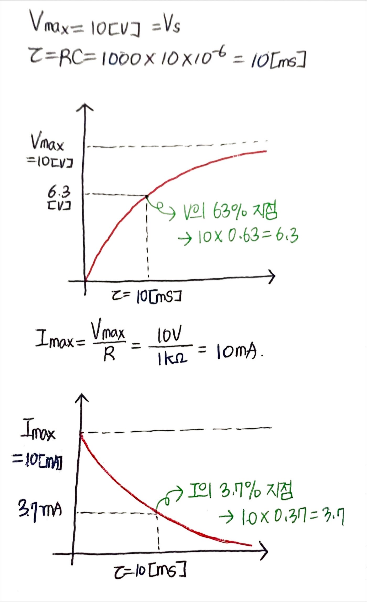 Vmax = 10[V] = Vs
τ=RC= 1000×10×10⁻⁶ = 10[ms]
Vmax
=10[V]
6.3
[V]
V의 63% 지점
→ 10×0.63=6.3
τ= 10[ms]
Imax = Vmax/R = 10V/1kΩ = 10mA.
Imax
=10[mA]
I의 3.7% 지점
3.7mA
→ 10×0.37=3.7
τ=10[ms]